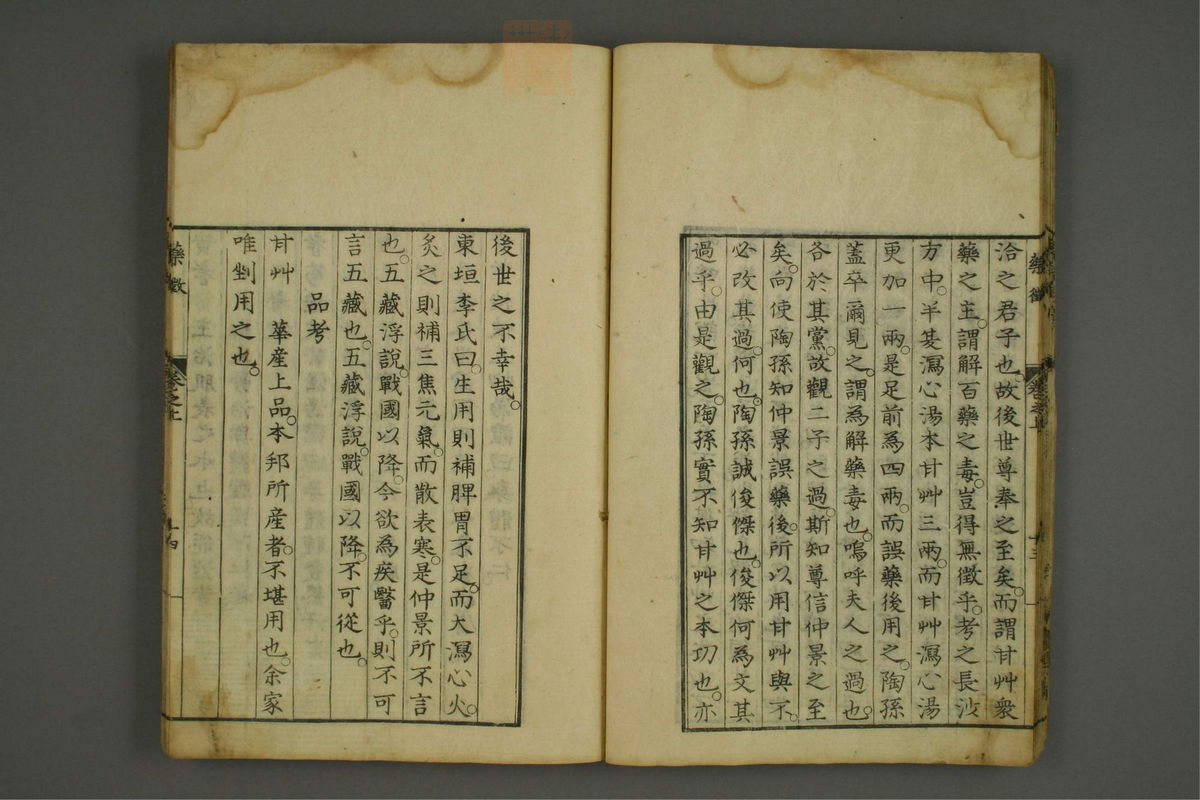 洽之君子也故後世尊奉之至矣。而謂甘艸衆
藥之主。謂解百藥之毒。豈得無徵乎。考之長沙
方中。半夏瀉心湯本甘艸三兩。而甘艸瀉心湯
更加一兩。是足前為四兩。而誤藥後用之。陶孫
蓋卒爾見之。謂為解藥毒也。嗚呼夫人之過也。
各於其黨。故觀二子之過。斯知尊信仲景之至
矣。向使陶孫知仲景誤藥後所以用甘艸與不。
必改其過。何也。陶孫誠俊傑也。俊傑何為文其
過乎。由是觀之。陶孫實不知甘艸之本功也。亦
後世之不幸哉。
東垣李氏曰。生用則補脾胃不足。而大瀉心火。
炙之則補三焦元氣。而散表寒。是仲景所不言
也。五藏浮說。戰國以降。今欲為疾醫乎。則不可
言五藏也。五藏浮說。戰國以降。不可從也。
品考
甘艸 華産上品。本邦所産者。不堪用也。余家
唯剉用之也。
藥徵
卷之上